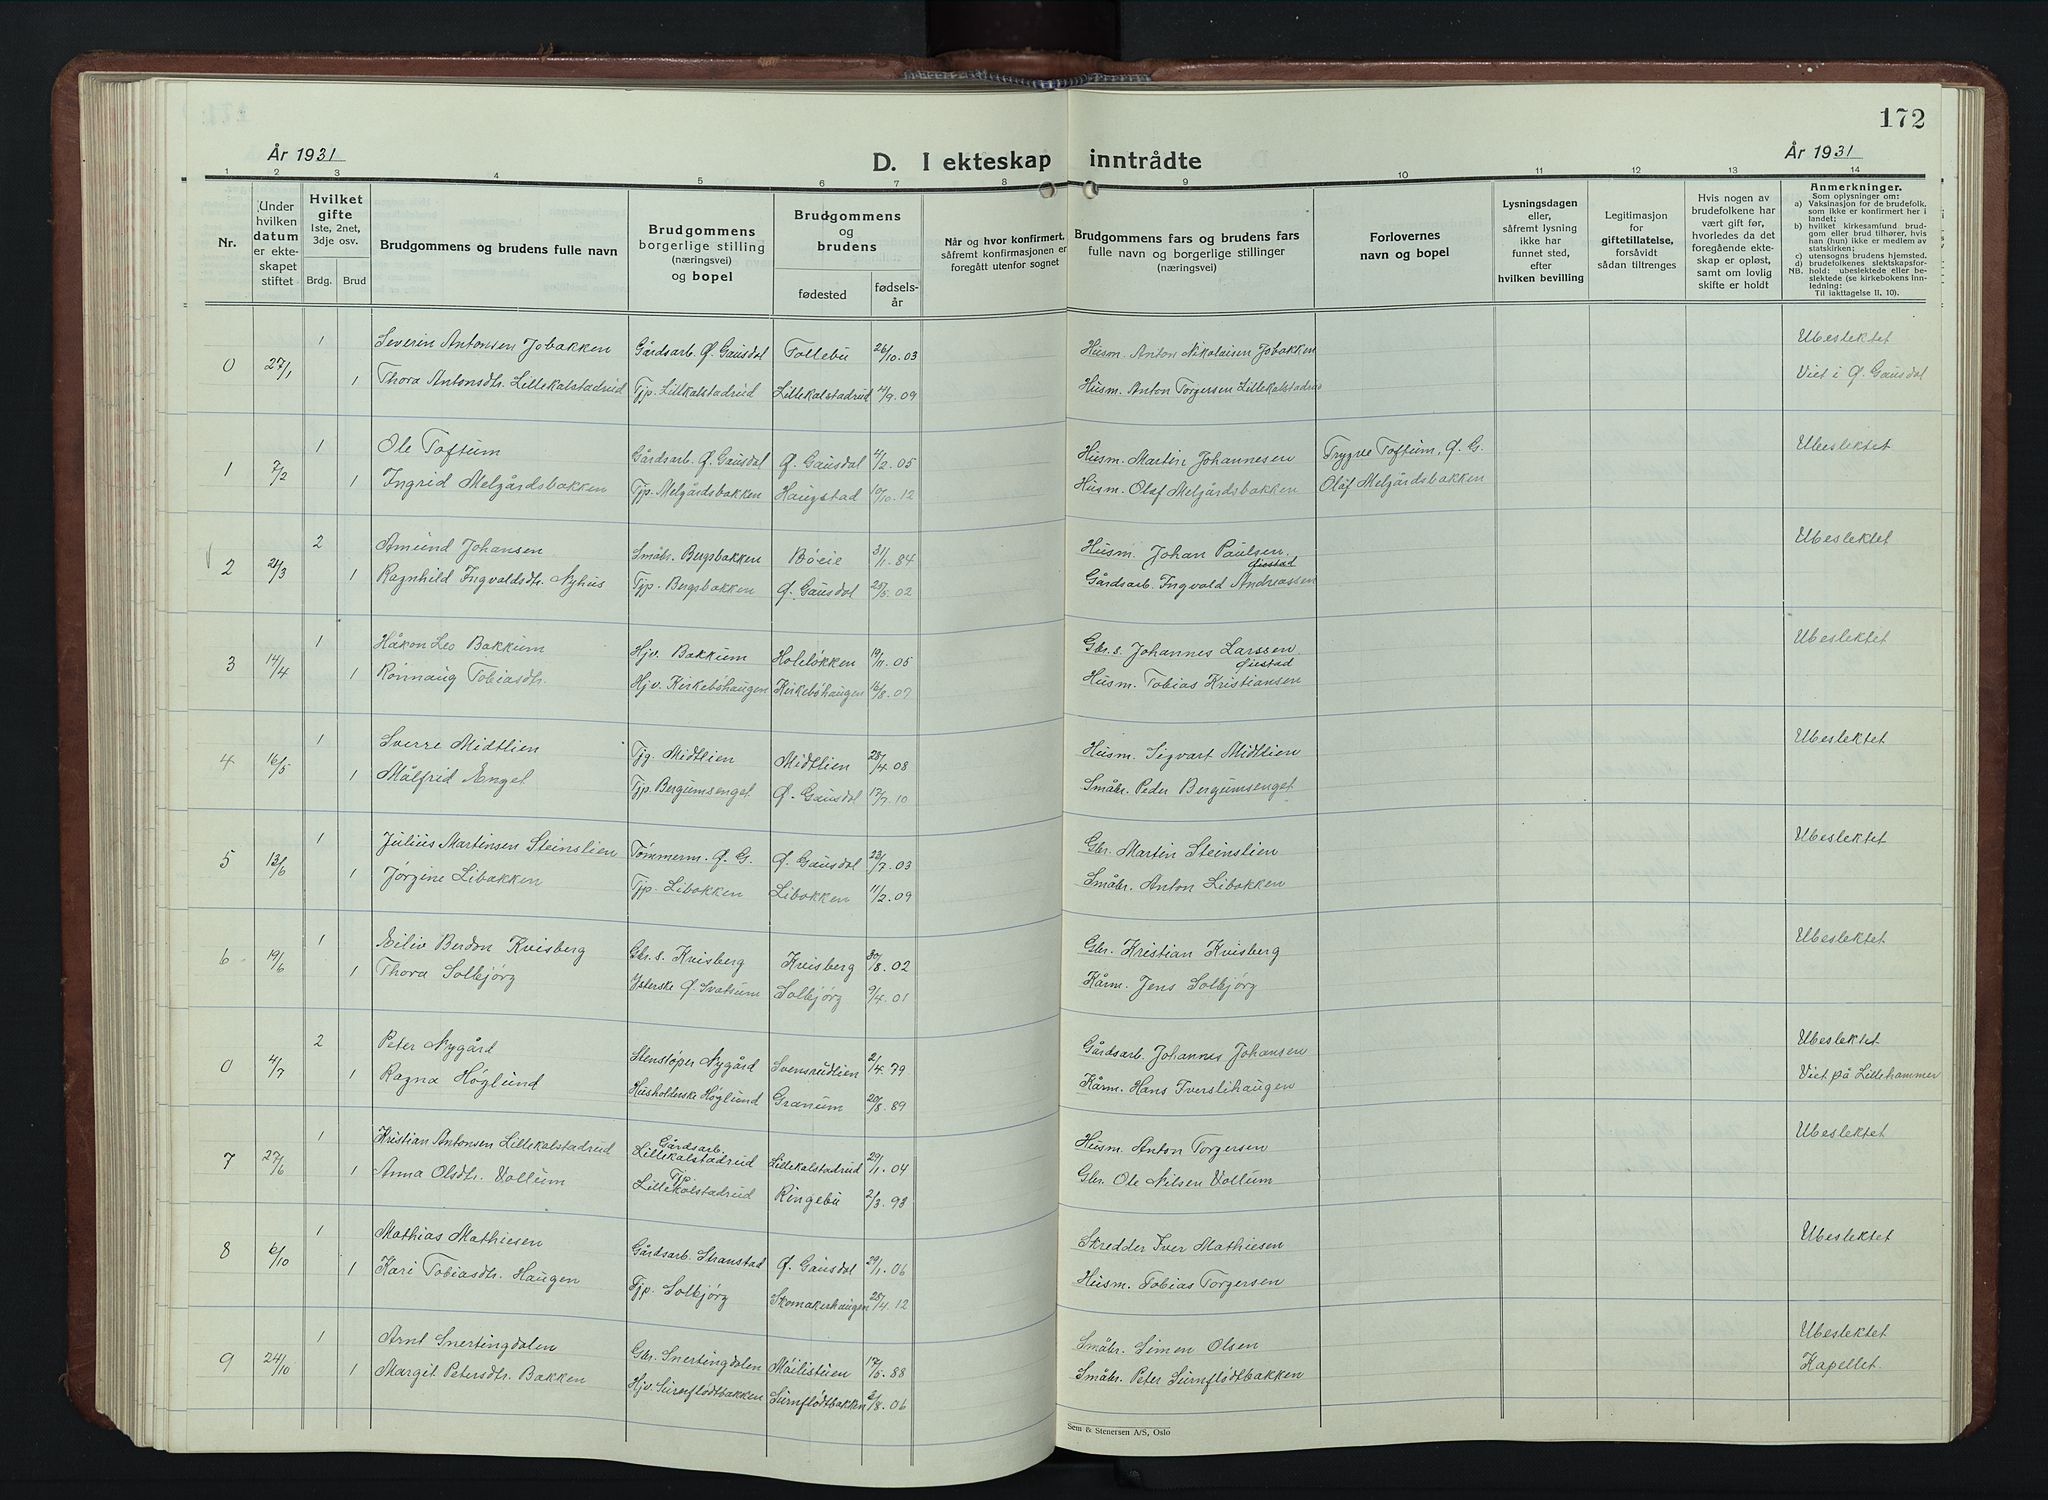 172
År 1931
D. I ekteskap inntrådte
År 1931
1 2 3 4 5 6 7 8 9 10 11 12 13 14
Nr.
Under hvilken datum er ekteskapet stiftet
Hvilket gifte 1ste, 2net, 3dje osv.
Brdg. Brud
Brudgommens og brudens fulle navn
Brudgommens borgerlige stilling (næringsvei) og bopel
Brudgommens og brudens
fødested
fødselsår
Når og hvor konfirmert, såfremt konfirmasjonen er foregått utenfor sognet
Brudgommens fars og brudens fars fulle navn og borgerlige stillinger (næringsvei)
Forlovernes navn og bopel
Lysningsdagen eller, såfremt lysning ikke har funnet sted, efter hvilken bevilling
Legitimasjon for giftetillatelse, forsåvidt sådan tiltrenges
Hvis nogen av brudefolkene har vært gift før, hvorledes da det foregående ekteskap er opløst, samt om lovlig skifte er holdt
Anmerkninger.
Som oplysninger om:
a) Vaksinasjon for de brudefolk, som ikke er konfirmert her i landet;
b) hvilket kirkesamfund brudgom eller brud tilhører, hvis han (hun) ikke er medlem av statskirken;
c) utensogns brudens hjemsted.
d) brudefolkenes slektskapsforhold: ubeslektede eller beslektede (se kirkebokens innledning:
NB. Til iakttagelse II, 10).
0 27/1 1 Severin Antonsen Jobakken Gårdsarb. Ø. Gausdal Follebu 26/10.03 Husm. Anton Nikolaisen Jobakken Ubeslektet
1 Thora Antonsdtr. Lillekalstadrud Tjp. Lillekalstadrud Lillekalstadrud 4/9.09 Husm. Anton Torgersen Lillekalstadrud Viet i Ø. Gausdal
1 7/2 1 Ole Toftum Gårdsarb. Ø. Gausdal Ø. Gausdal 4/2.05 Husm. Martin Johannesen Trygve Toftum, Ø. G. Ubeslektet
1 Ingrid Melgårdsbakken Tjp. Melgårdsbakken Haugstad 10/10.12 Husm. Olaf Melgårdsbakken Olaf Melgårdsbakken
2 21/3 2 Amund Johansen Småbr. Bergsbakken Bøeie 31/1.84 Husm. Johan Paulsen. Ubeslektet
1 Ragnhild Ingvaldsdtr. Nyhus Tjp. Bergsbakken Ø. Gausdal 25/5.02 Gårdsarb. Ingvald Andreassen Øiestad
3 14/4 1 Håkon Leo Bakkum Hjv. Bakkum Holeløkken 19/11.05 Gbr.s. Johannes Larssen. Ubeslektet
1 Rønnaug Tobiasdtr. Hjv. Kirkebøhaugen Kirkebøhaugen 16/8.07 Husm. Tobias Kristiansen Øiestad
4 16/5 1 Sverre Midtlien Tjg. Midtlien Midtlien 28/4.08 Husm. Sigvart Midtlien Ubeslektet
1 Målfrid Enget Tjp. Bergumsenget Ø. Gausdal 17/7.10 Småbr. Peder Bergumsenget
5 13/6 1 Julius Martinsen Steinslien Tømmerm. Ø. G. Ø. Gausdal 23/7.03 Gbr. Martin Steinslien Ubeslektet
1 Jørgine Libakken Tjp. Libakken Libakken 11/2.09 Småbr. Anton Libakken
6 19/6 1 Eiliv Berdon Kvisberg Gbr.s. Kvisberg Kvisberg 30/8.02 Gbr. Kristian Kvisberg Ubeslektet
1 Thora Solbjørg Ysterske Ø. Svatsum Solbjørg 9/4.01 Kårm. Jens Solbjørg
0 4/7 2 Peter Nygård Stensløper Nygård Svensrudlien 2/4.79 Gårdsarb. Johannes Johansen Ubeslektet
1 Ragna Høglund Husholderske Høglund Granum 20/8.89 Kårm. Hans Iverslihaugen Viet på Lillehammer
7 27/6 1 Kristian Antonsen Lillekalstadrud Gårdsarb. Lillekalstadrud Lillekalstadrud 29/1.04 Husm. Anton Torgersen Ubeslektet
1 Anna Olsdtr. Vollum Tjp. Lillekalstadrud Ringebu 2/3.93 Gbr. Ole Nilsen Vollum
8 6/10 1 Mathias Mathiesen Gårdsarb. Stranstad Ø. Gausdal 29/1.06 Skredder Iver Mathiesen Ubeslektet
1 Kari Tobiasdtr. Haugen Tjp. Solbjørg Skomakerhaugen 28/4.12 Husm. Tobias Torgersen
9 24/10 1 Arnt Snertingdalen Gbr. Snertingdalen Måilistuen 17/5.88 Småbr. Simen Olsen Ubeslektet
1 Margit Petersdtr. Bakken Hjv. Surnflødtbakken Surnflødtbakken 2/8.06 Småbr. Peter Surnflødtbakken Kapellet.
Sem & Stenersen A/S, Oslo